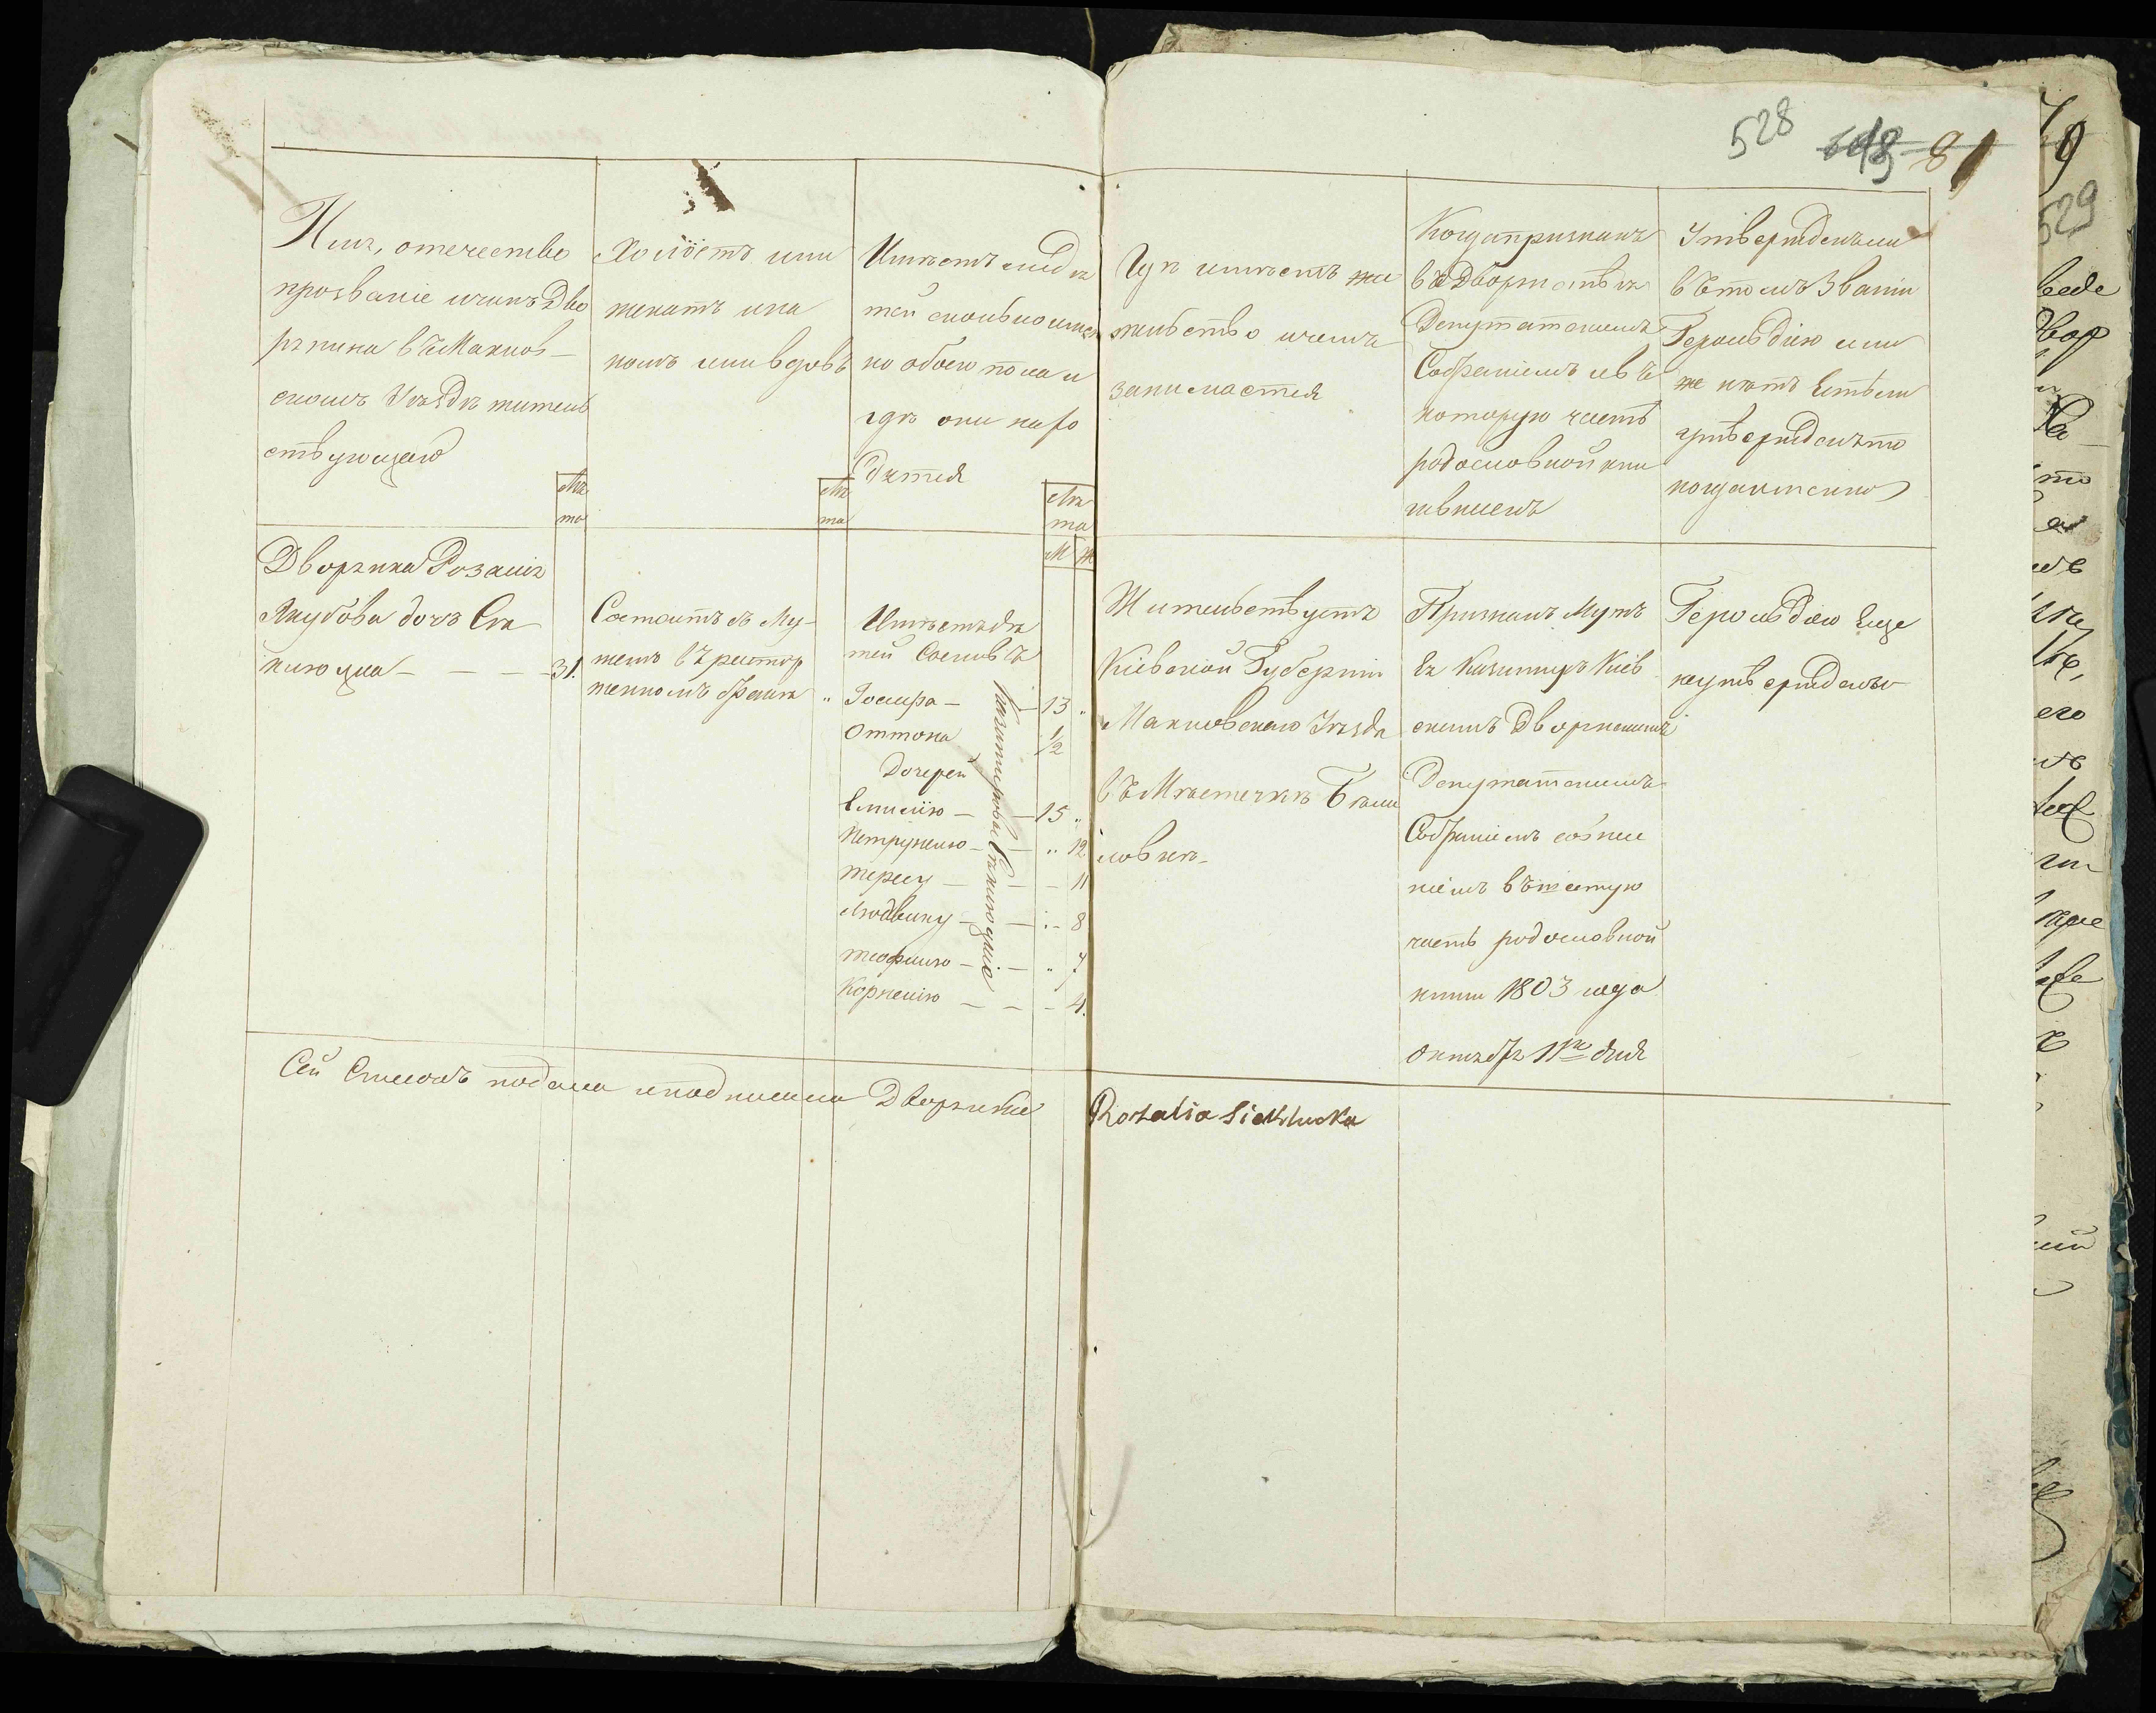 528
81
Имя, отечество
прозваніе и чинъ Дво
рянина въ Махнов-
скомъ Уѣздѣ житель
ствующаго
Лѣ
та
Холостъ или
женатъ и на
комъ или вдовъ
Лѣ
та
Имѣетъ ли дѣ
тей сколько имен
но обоего пола и
гдѣ они нахо
дятся
Лѣ
та
М Ж
Гдѣ имѣетъ жи
тельство и чемъ
занимается
Когда признанъ
въ Дворянствѣ
Депутатскимъ
Собраніемъ и въ
которую часть
родословной кни
ги внесенъ
Утвержденъ ли
въ томъ Званіи
Герольдіею или
же нѣтъ Естьли
утвержденъ то
когда именно
Дворянка Розалія
Якубова дочь Сѣ
клюцка - - - 31.
Состоитъ съ Му-
жемъ въ растор
женномъ бракѣ "
Имѣетъ дѣ
тей Сыновъ
Іосифа - 13 "
Оттона 1/2
Дочерей
Емилію - 15 "
Петрунелю - " 12
терезу - - 11
Людвику - - 8
теофилю - " 7
Корнелію - - 4.
Казимировы Сѣклюцкіе
Жительствуетъ
Кіевской Губерніи
Махновскаго Уѣзда
въ Мѣстечкѣ Бѣли
ловкѣ-
Признанъ Мужъ
Ея Казимиръ Кіев
скимъ Дворянскимъ
Депутатскимъ
Собраніемъ со внесе
ніемъ въ шестую
часть родословной
книги 1803 года
октября 11го дня
Герольдіею Еще
не утвержденъ
Сей Списокъ подала и подписала Дворянка
Rozalia Sieklucka